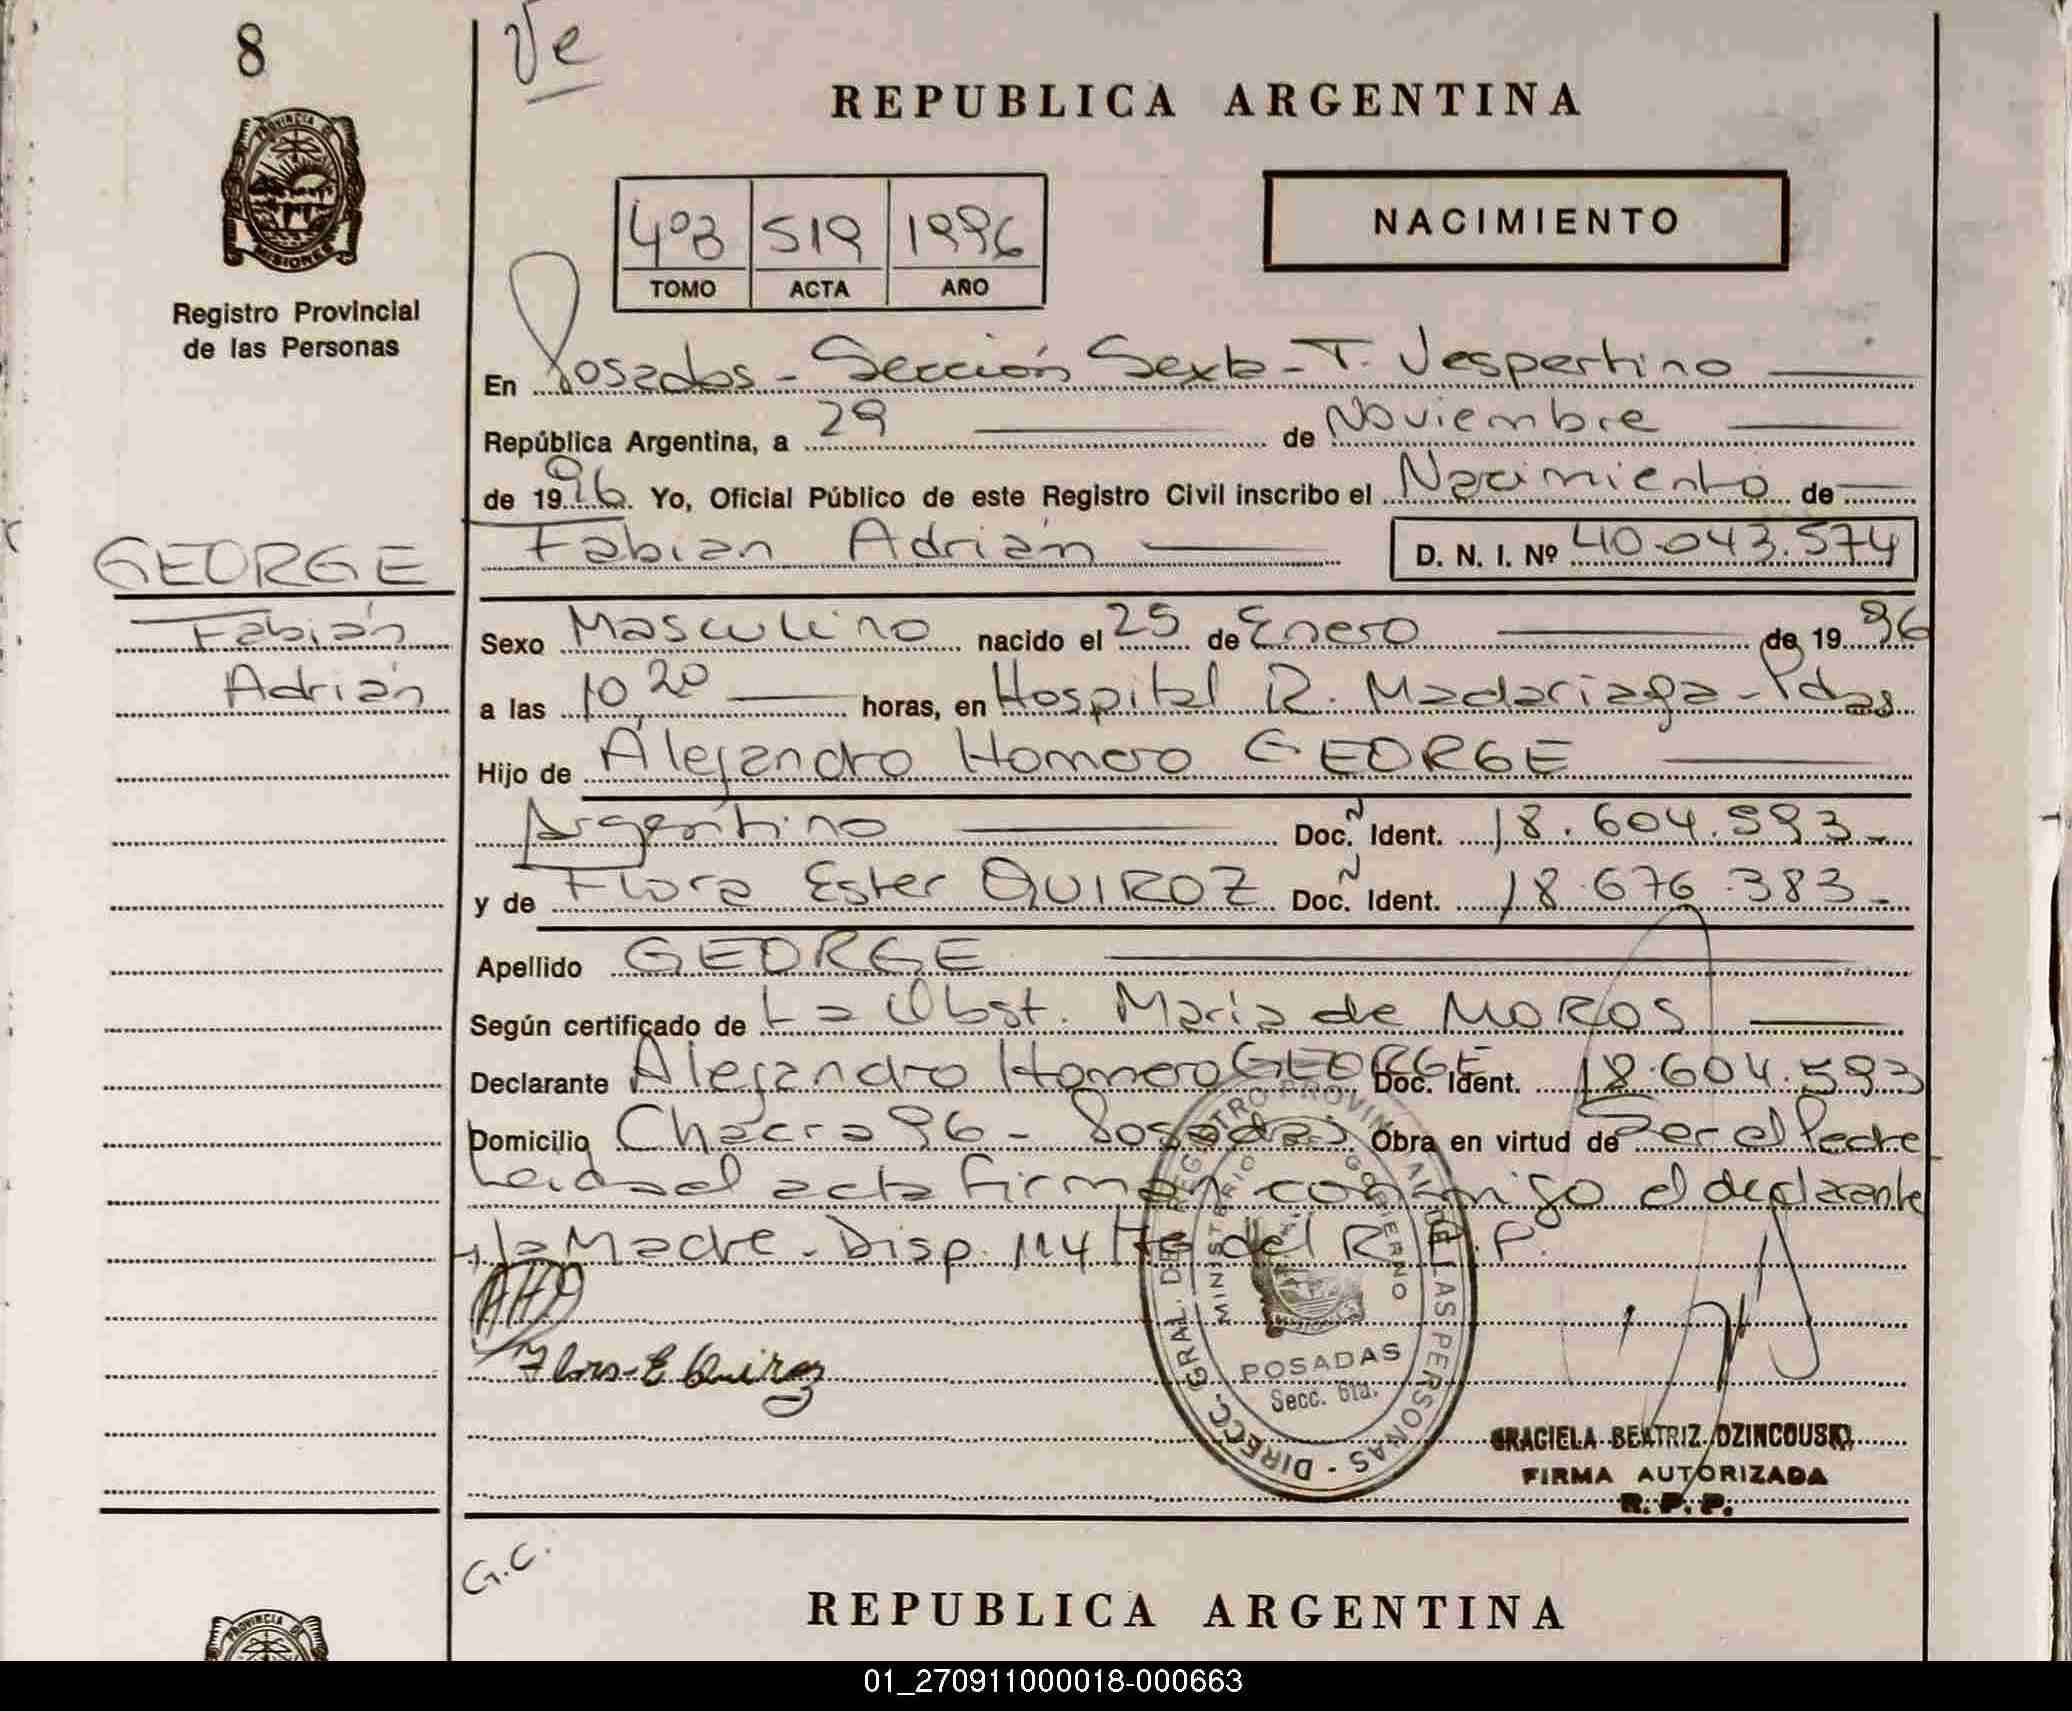 8
Ve
REPUBLICA ARGENTINA
PROVINCIA DE
MISIONES
Registro Provincial
de las Personas
403 519 1996
TOMO ACTA AÑO
NACIMIENTO
En Posadas - Sección Sexta - T. Vespertino
República Argentina, a 29 de Noviembre
de 1996. Yo, Oficial Público de este Registro Civil inscribo el Nacimiento de
GEORGE
Fabián
Adrián
Fabian Adrián D. N. I. Nº 40.043.574
Sexo Masculino nacido el 25 de Enero de 1996
a las 10,20 horas, en Hospital R. Madariaga - Pdas
Hijo de Alejandro Homero GEORGE
Argentino Doc. N Ident. 18.604.593-
y de Flora Ester QUIROZ Doc. N Ident. 18.676.383-
Apellido GEORGE
Según certificado de La Obst. Maria de MOROS
Declarante Alejandro Homero GEORGE Doc. Ident. 18.604.593
Domicilio Chacra 96 - Posadas Obra en virtud de Ser el Padre
Leida el acta firman conmigo el declarante
y la Madre - Disp. 114 del R. P. P.
Flora E Quiroz
DIRECC. GRAL. DE REGISTRO PROVINCIAL DE LAS PERSONAS -
MINISTERIO GOBIERNO
POSADAS
Secc. 6ta.
GRACIELA BEATRIZ DZINCOUSKI
FIRMA AUTORIZADA
R. P. P.
G.C.
REPUBLICA ARGENTINA
PROVINCIA DE
01_270911000018-000663